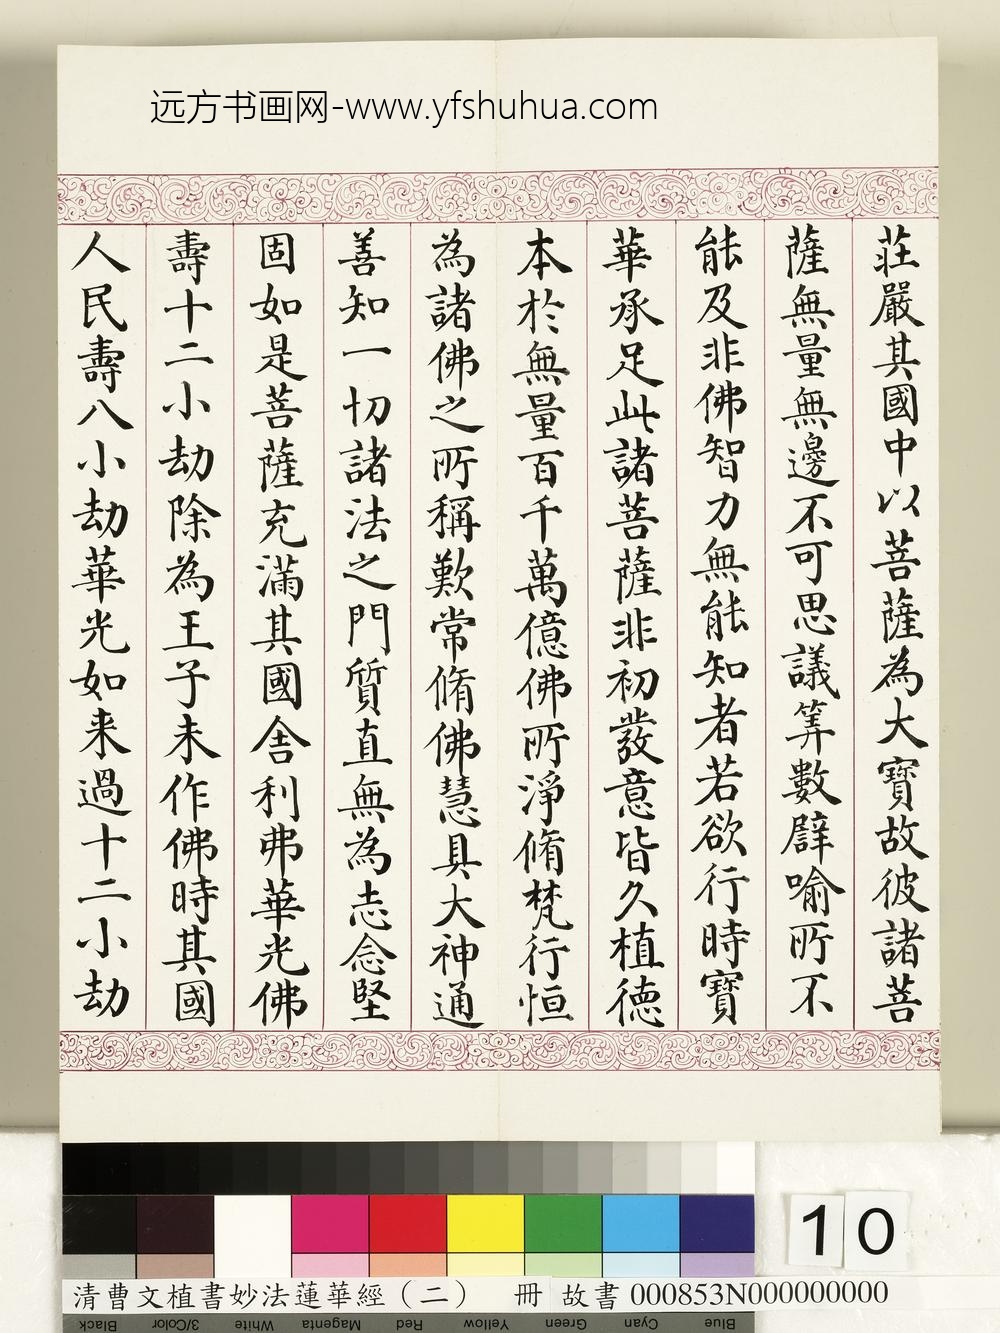 远方书画网-www.yfshuhua.com
莊嚴其國中以菩薩為大寶故彼諸菩
薩無量無邊不可思議筭數譬喻所不
能及非佛智力無能知者若欲行時寶
華承足此諸菩薩非初發意皆久植德
本於無量百千萬億佛所淨脩梵行恒
為諸佛之所稱歎常脩佛慧具大神通
善知一切諸法之門質直無為志念堅
固如是菩薩充滿其國舍利弗華光佛
壽十二小劫除為王子未作佛時其國
人民壽八小劫華光如来過十二小劫
10
清曹文植書妙法蓮華經（二） 冊 故書 000853N000000000
Black 3/Color White Magenta Red Yellow Green Cyan Blue